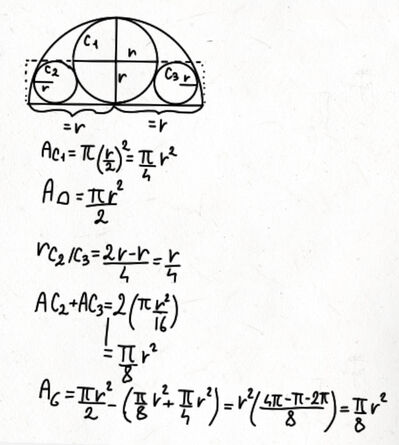 C1 r
C2 r C3 r
r
=r =r
AC1=π(r/2)²=π/4 r²
A⌓=πr²/2
rC2/C3=2r-r/4=r/4
AC2+AC3=2(π r²/16)
=π/8 r²
AG=πr²/2-(π/8 r²+π/4 r²)=r²(4π-π-2π/8)=π/8 r²